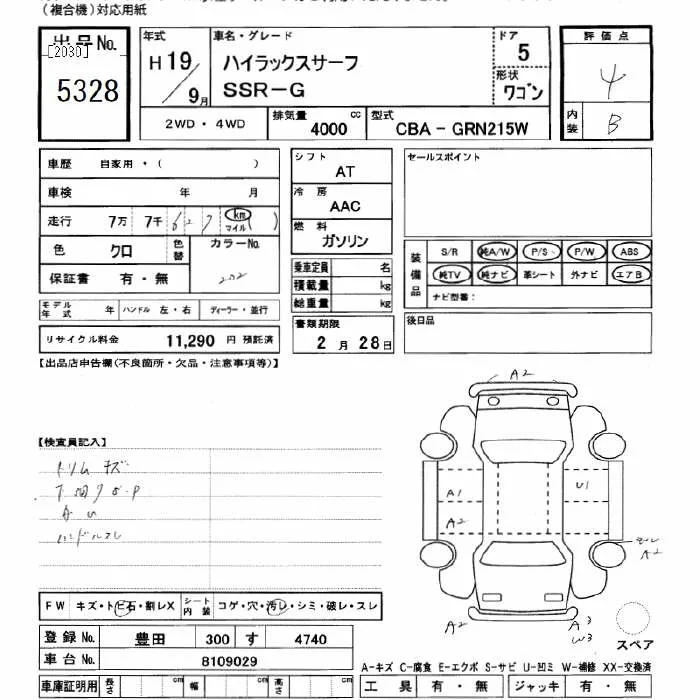 （複合機）対応用紙
出品No.
[2030]
5328
年式
H19/9月
車名・グレード
ハイラックスサーフ
SSR-G
ドア
5
形状
ワゴン
評価点
4
内装
B
2WD・4WD
排気量
4000 cc
型式
CBA - GRN215W
車歴 自家用・（ ）
車検 年 月
走行 7万 7千 627 km マイル ( )
色 クロ 色替 カラーNo. 202
保証書 有・無
モデル年式 年 ハンドル 左・右 ディーラー・並行
リサイクル料金 11,290 円 預託済
シフト
AT
冷房
AAC
燃料
ガソリン
乗車定員 名
積載量 kg
総重量 kg
書類期限
2 月 28 日
セールスポイント
装備品
S/R 純A/W P/S P/W ABS
純TV 純ナビ 革シート 外ナビ エアB
ナビ型番：
後日品
【出品店申告欄(不良箇所・欠品・注意事項等)】
【検査員記入】
トリム キズ
ハンドルスレ
A2
A1
U1
A2
A2
A2
A3
W3
スペア
FW キズ・トビ石・割レX シート内装 コゲ・穴・汚レ・シミ・破レ・スレ
登録No. 豊田 300 す 4740
車台No. 8109029
車庫証明用 長さ cm 幅 cm 高さ cm
A-キズ C-腐食 E-エクボ S-サビ U-凹ミ W-補修 XX-交換済
工具 有・無 ジャッキ 有・無